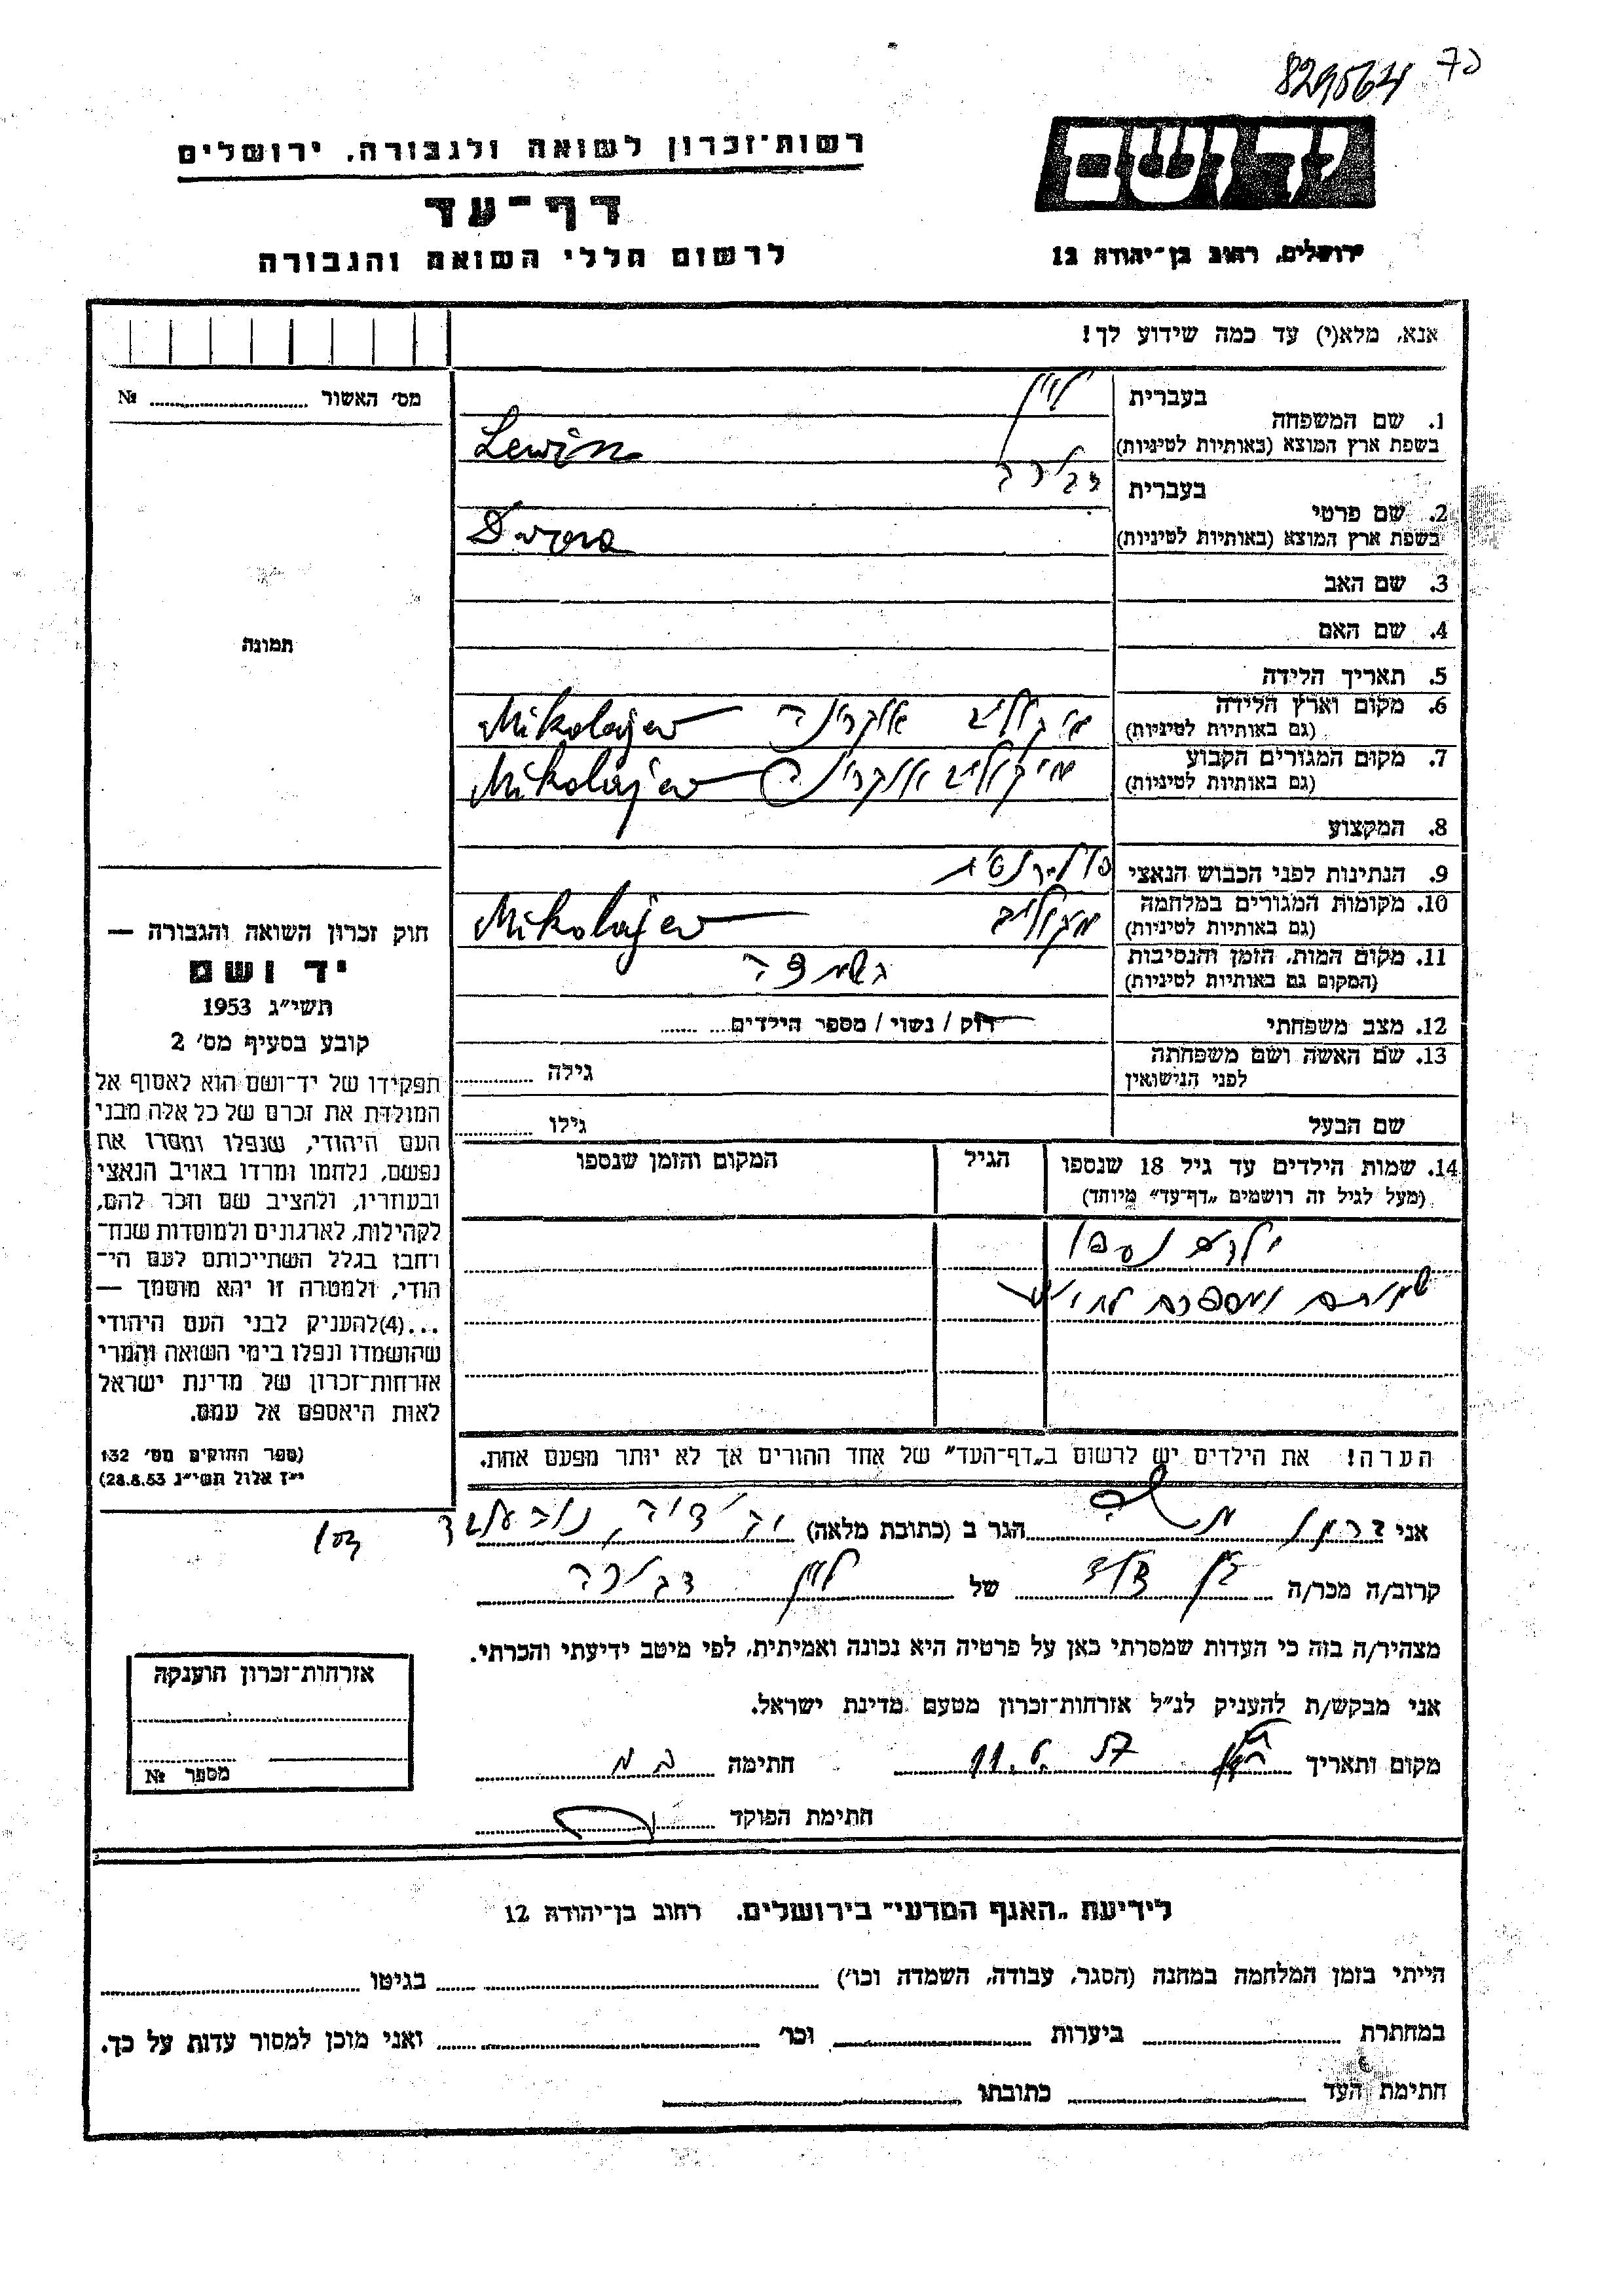 829564 70
יד ושם
רשות־זכרון לשואה ולגבורה, ירושלים
דף־עד
לרשום חללי השואה והגבורה
ירושלים, רחוב בן־יהודה 12
אנא, מלא(י) עד כמה שידוע לך!
מס' האשור № 
תמונה
1. שם המשפחה בעברית לוין
בשפת ארץ המוצא (באותיות לטיניות) Lewin
2. שם פרטי בעברית
בשפת ארץ המוצא (באותיות לטיניות)
3. שם האב
4. שם האם
5. תאריך הלידה
6. מקום וארץ הלידה
(גם באותיות לטיניות) אוקרינה Mikolajew
7. מקום המגורים הקבוע
(גם באותיות לטיניות) מיקוליב אוקרינה Mikolajew
8. המקצוע
9. הנתינות לפני הכבוש הנאצי
10. מקומות המגורים במלחמה
(גם באותיות לטיניות) Mikolajew
11. מקום המות, הזמן והנסיבות
(המקום גם באותיות לטיניות) נשמדה
12. מצב משפחתי רוק / נשוי / מספר הילדים
13. שם האשה ושם משפחתה
לפני הנישואין גילה
שם הבעל גילו
14. שמות הילדים עד גיל 18 שנספו הגיל המקום והזמן שנספו
(מעל לגיל זה רושמים „דף־עד" מיוחד)
ילדים נספו
שמותם ומספרם לא
הערה! את הילדים יש לרשום ב„דף־העד" של אחד ההורים אך לא יותר מפעם אחת.
חוק זכרון השואה והגבורה —
יד ושם
תשי"ג 1953
קובע בסעיף מס' 2
תפקידו של יד־ושם הוא לאסוף אל
המולדת את זכרם של כל אלה מבני
העם היהודי, שנפלו ומסרו את
נפשם, נלחמו ומרדו באויב הנאצי
ובעוזריו, ולהציב שם וזכר להם,
לקהילות, לארגונים ולמוסדות שנח־
רחבו בגלל השתייכותם לעם הי־
הודי, ולמטרה זו יהא מוסמך —
...(4)להעניק לבני העם היהודי
שהושמדו ונפלו בימי השואה והמרי
אזרחות־זכרון של מדינת ישראל
לאות היאספם אל עמם.
(ספר החוקים מס' 132
י"ז אלול תשי"ג 28.8.53)
אני הגר ב (כתובת מלאה)
קרוב/ה מכר/ה בן דוד של לוין
מצהיר/ה בזה כי העדות שמסרתי כאן על פרטיה היא נכונה ואמיתית, לפי מיטב ידיעתי והכרתי.
אני מבקש/ת להעניק לנ"ל אזרחות־זכרון מטעם מדינת ישראל.
מקום ותאריך 11.6.57 חתימה
חתימת הפוקד
אזרחות־זכרון הוענקה
מספר №
לידיעת „האגף המדעי" בירושלים, רחוב בן־יהודה 12
הייתי בזמן המלחמה במחנה (הסגר, עבודה, השמדה וכו') בגיטו
במחתרת ביערות וכו' ואני מוכן למסור עדות על כך.
חתימת העד כתובתו